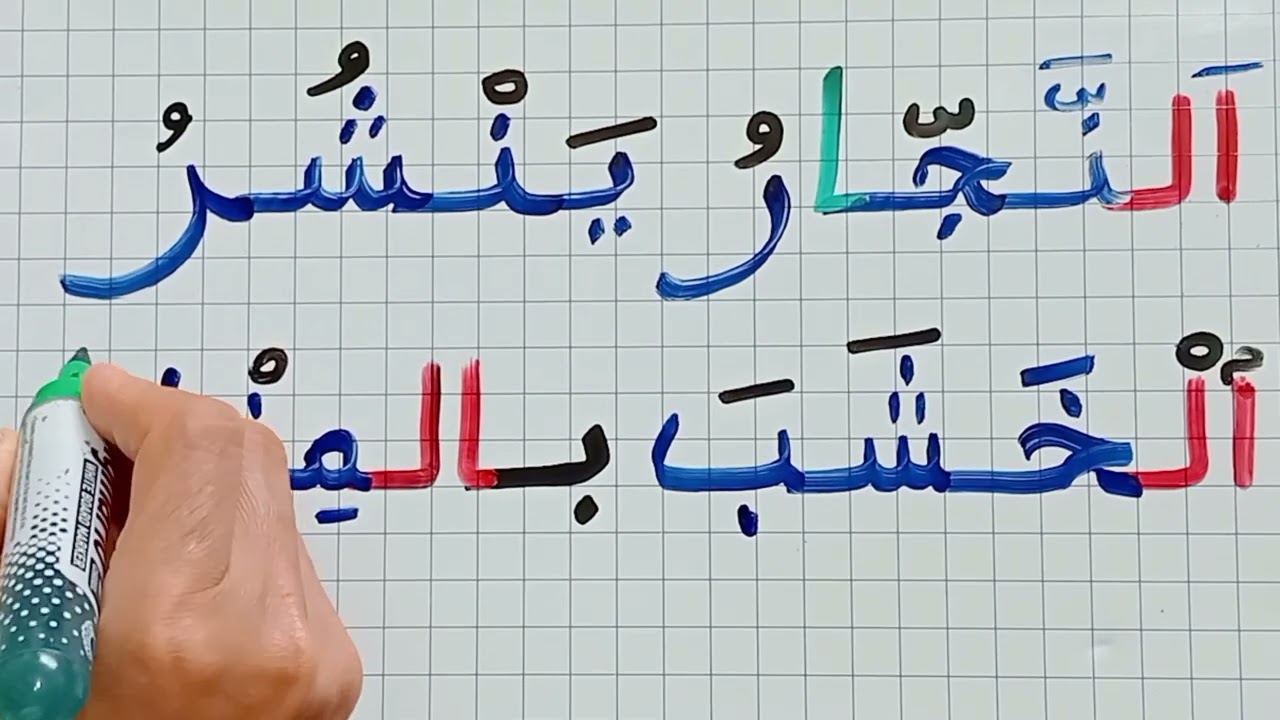 اَلنَّجّارُ يَنْشُرُ
ٱلْخَشَبَ
WHITE BOARD MARKER